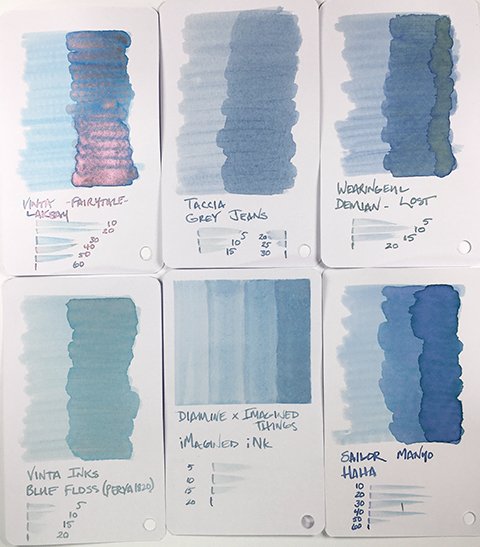 VINTA - FAIRYTALE -
10
20
30
40
50
60
TACCIA
GREY JEANS
5
10
15
20
25
30
WEARINGEUL
DEMIAN - LOST
5
10
15
20
VINTA INKS
BLUE FLOSS (PERYA 1820)
5
10
15
20
DIAMINE X IMAGINED
THINGS
iMAGINED iNK
5
10
15
20
SAILOR MANYO
HAHA
10
20
30
40
50
60